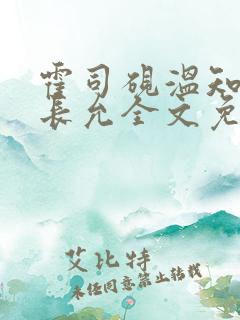 霍司砚温知
长允全文免
艾比特
未经同意禁止转载